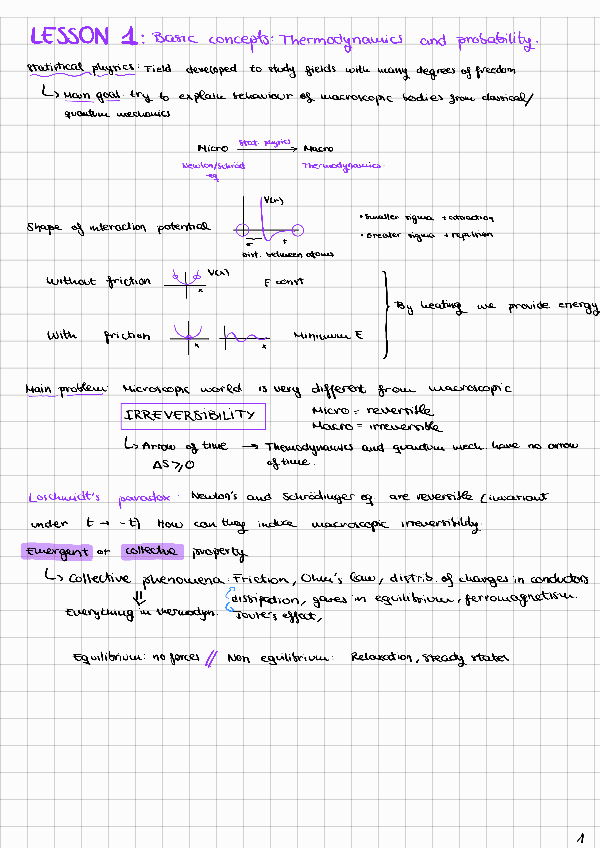 LESSON 1: Basic concepts: Thermodynamics and probability.
Statistical physics: Field developed to study fields with many degrees of freedom
↳ Main goal: try to explain behaviour of macroscopic bodies from classical/
quantum mechanics
Micro Stat. physics → Macro
Newton/Schröd eq Thermodynamics
Shape of interaction potential
V(r)
σ r
Dist. between atoms
• Smaller sigma → attraction
• Greater sigma → repulsion
Without friction V(x) x E const
With friction x x Minimum E
By heating we provide energy
Main problem: Microscopic world is very different from macroscopic
IRREVERSIBILITY
Micro = reversible
Macro = irreversible
↳ Arrow of time → Themodynamics and quantum mech. have no arrow
ΔS ≥ 0 of time.
Loschmidt's paradox: Newton's and Schrödinger eq are reversible (invariant
under t → -t) How can they induce macroscopic irreversibility
Emergent or collective property
↳ Collective phenomena: Friction, Ohm's law, distrib. of charges in conductors
⇓ dissipation, gases in equilibrium, ferromagnetism.
Everything in thermodyn. Joule's effect,
Equilibrium: no forces // Non equilibrium: Relaxation, steady states
1